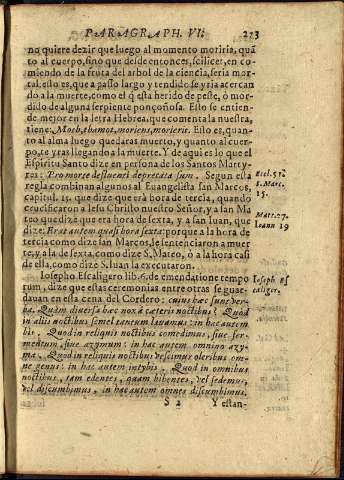 PARAGRAPH. VI. 273
no quiere dezir que luego al momento moriria, quã
to al cuerpo, sino que desde entonces, scilicet, en co-
miendo de la fruta del arbol de la ciencia, seria mor-
tal: esto es, que a passo largo y tendido se yria acercan
do a la muerte, como el q̃ està herido de peste, ò mor-
dido de alguna serpiente ponçoñosa. Esto se entien-
de mejor en la letra Hebrea, que comenta la nuestra,
tiene, Moth, thamoth, moriens, morieris. Esto es, quan-
to al alma luego quedaras muerto, y quanto al cuer-
po, te yras llegando a la muerte. Y de aqui es lo que el
Espiritu Santo dize en persona de los Santos Marty-
res: Pro morte defluenti deprecata sum. Segun esta
regla combinan algunos al Euangelista san Marcos,
capitul. 15. que dize que era hora de tercia, quando
crucificaron a Iesu Christo nuestro Señor, y a san Ma
teo que dize que era hora de sexta, y a san Iuan, que
dize: Erat autem quasi hora sexta: porque a la hora de
tercia como dize san Marcos, le sentenciaron a muer
te, y a la de sexta, como dize S. Mateo, ò a la hora casi
de ella, como dize S. Iuan la executaron.
Eccl. 51.
S. Marc.
15.
Matt. 27.
Ioann 19
Iosepho Escaligero lib. 6. de emendatione tempo
rum, dize que estas ceremonias entre otras se guar-
dauan en esta cena del Cordero: cuius hæc sunt ver-
ba. Quàm diuersa hæc nox à cæteris noctibus? Quòd
in alijs noctibus semel tantum lauamus: in hac autem
bis. Quòd in reliquis noctibus comedimus, siue fer-
mentum, siue azymum: in hac autem omnino azy-
ma. Quòd in reliquis noctibus vescimur oleribus om-
ne genus: in hac autem intybis. Quod in omnibus
noctibus, tam edentes, quam bibentes, vel sedemus,
vel discumbimus, in hac autem omnes discumbimus.
Ioseph Es
caliger.
S 2 Y estan-